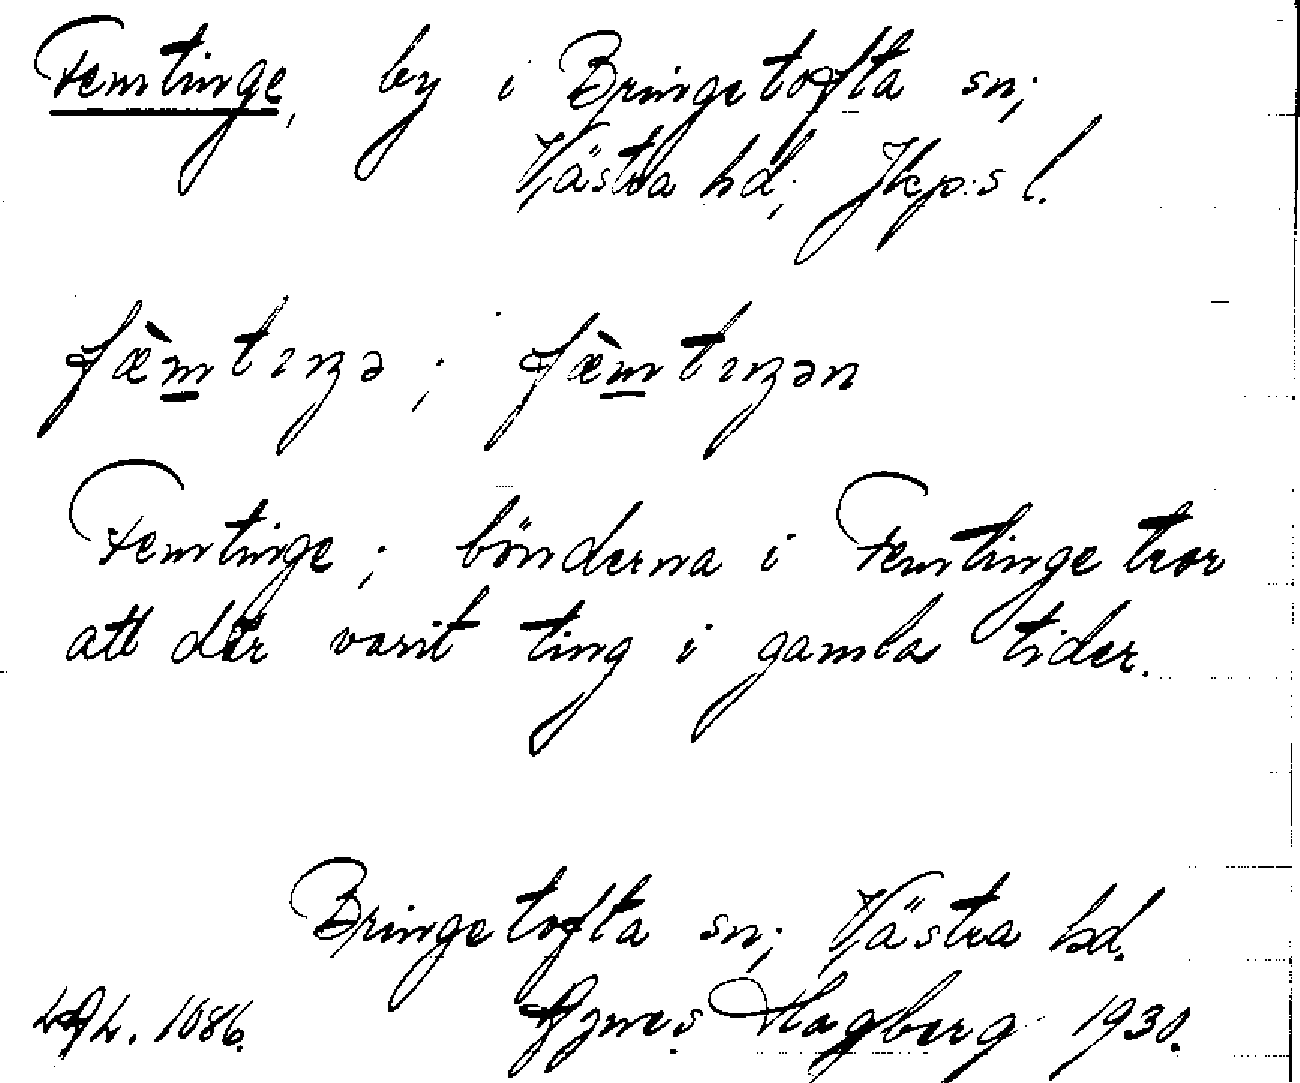 Femtinge, by i Bringetofta sn;
Västra hd; Jkp:s l.
fæ̀mtıŋə ; fæ̀mtıŋən
Femtinge ; bönderna i Femtinge tror
att där varit ting i gamla tider.
Bringetofta sn; Västra hd.
1086. Agnes Hagberg 1930.